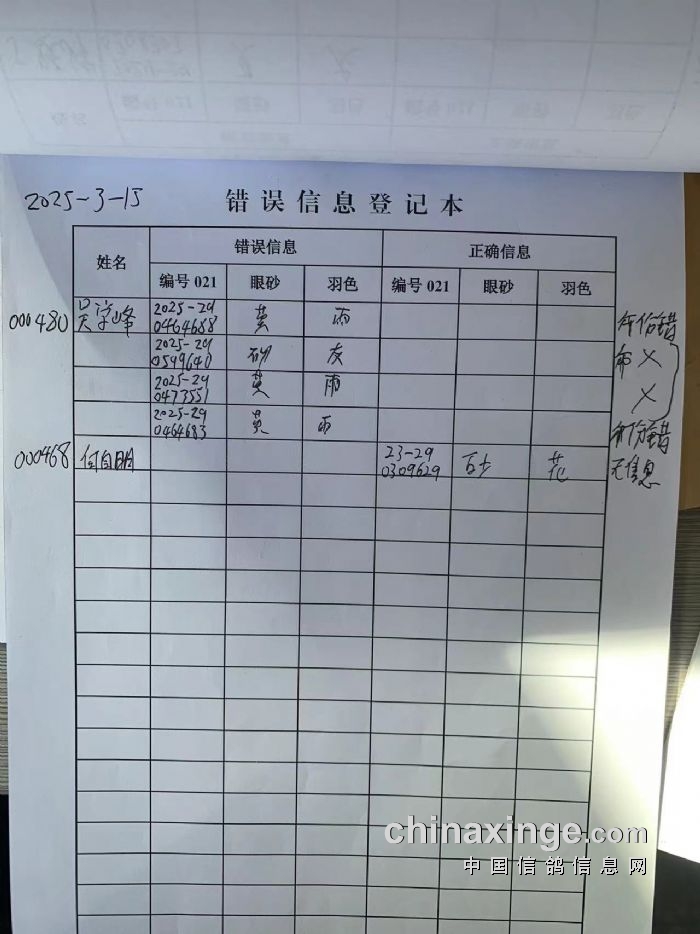 2025-3-15
错误信息登记本
姓名 错误信息 正确信息
编号021 眼砂 羽色 编号021 眼砂 羽色
000480 吴学峰 2025-29 0464688 黄 雨 年份错
2025-29 0549640 砂 灰 ×
2025-29 0473551 黄 雨 ×
2025-29 0464683 黄 雨 年份错
000468 何自明 23-29 0309629 砂 花 无信息
chinaxinge.com
中国信鸽信息网